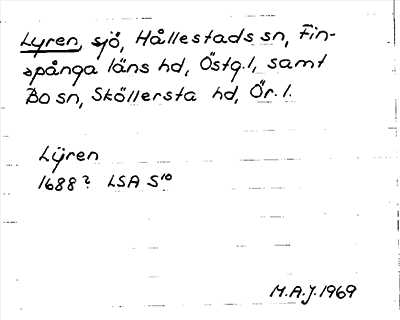 Lyren, sjö, Hållestads sn, Fin-
spånga läns hd, Östg.l, samt
Bo sn, Sköllersta hd, Ör.l.
Lÿren
1688? LSA S¹⁰
M.A.J. 1969